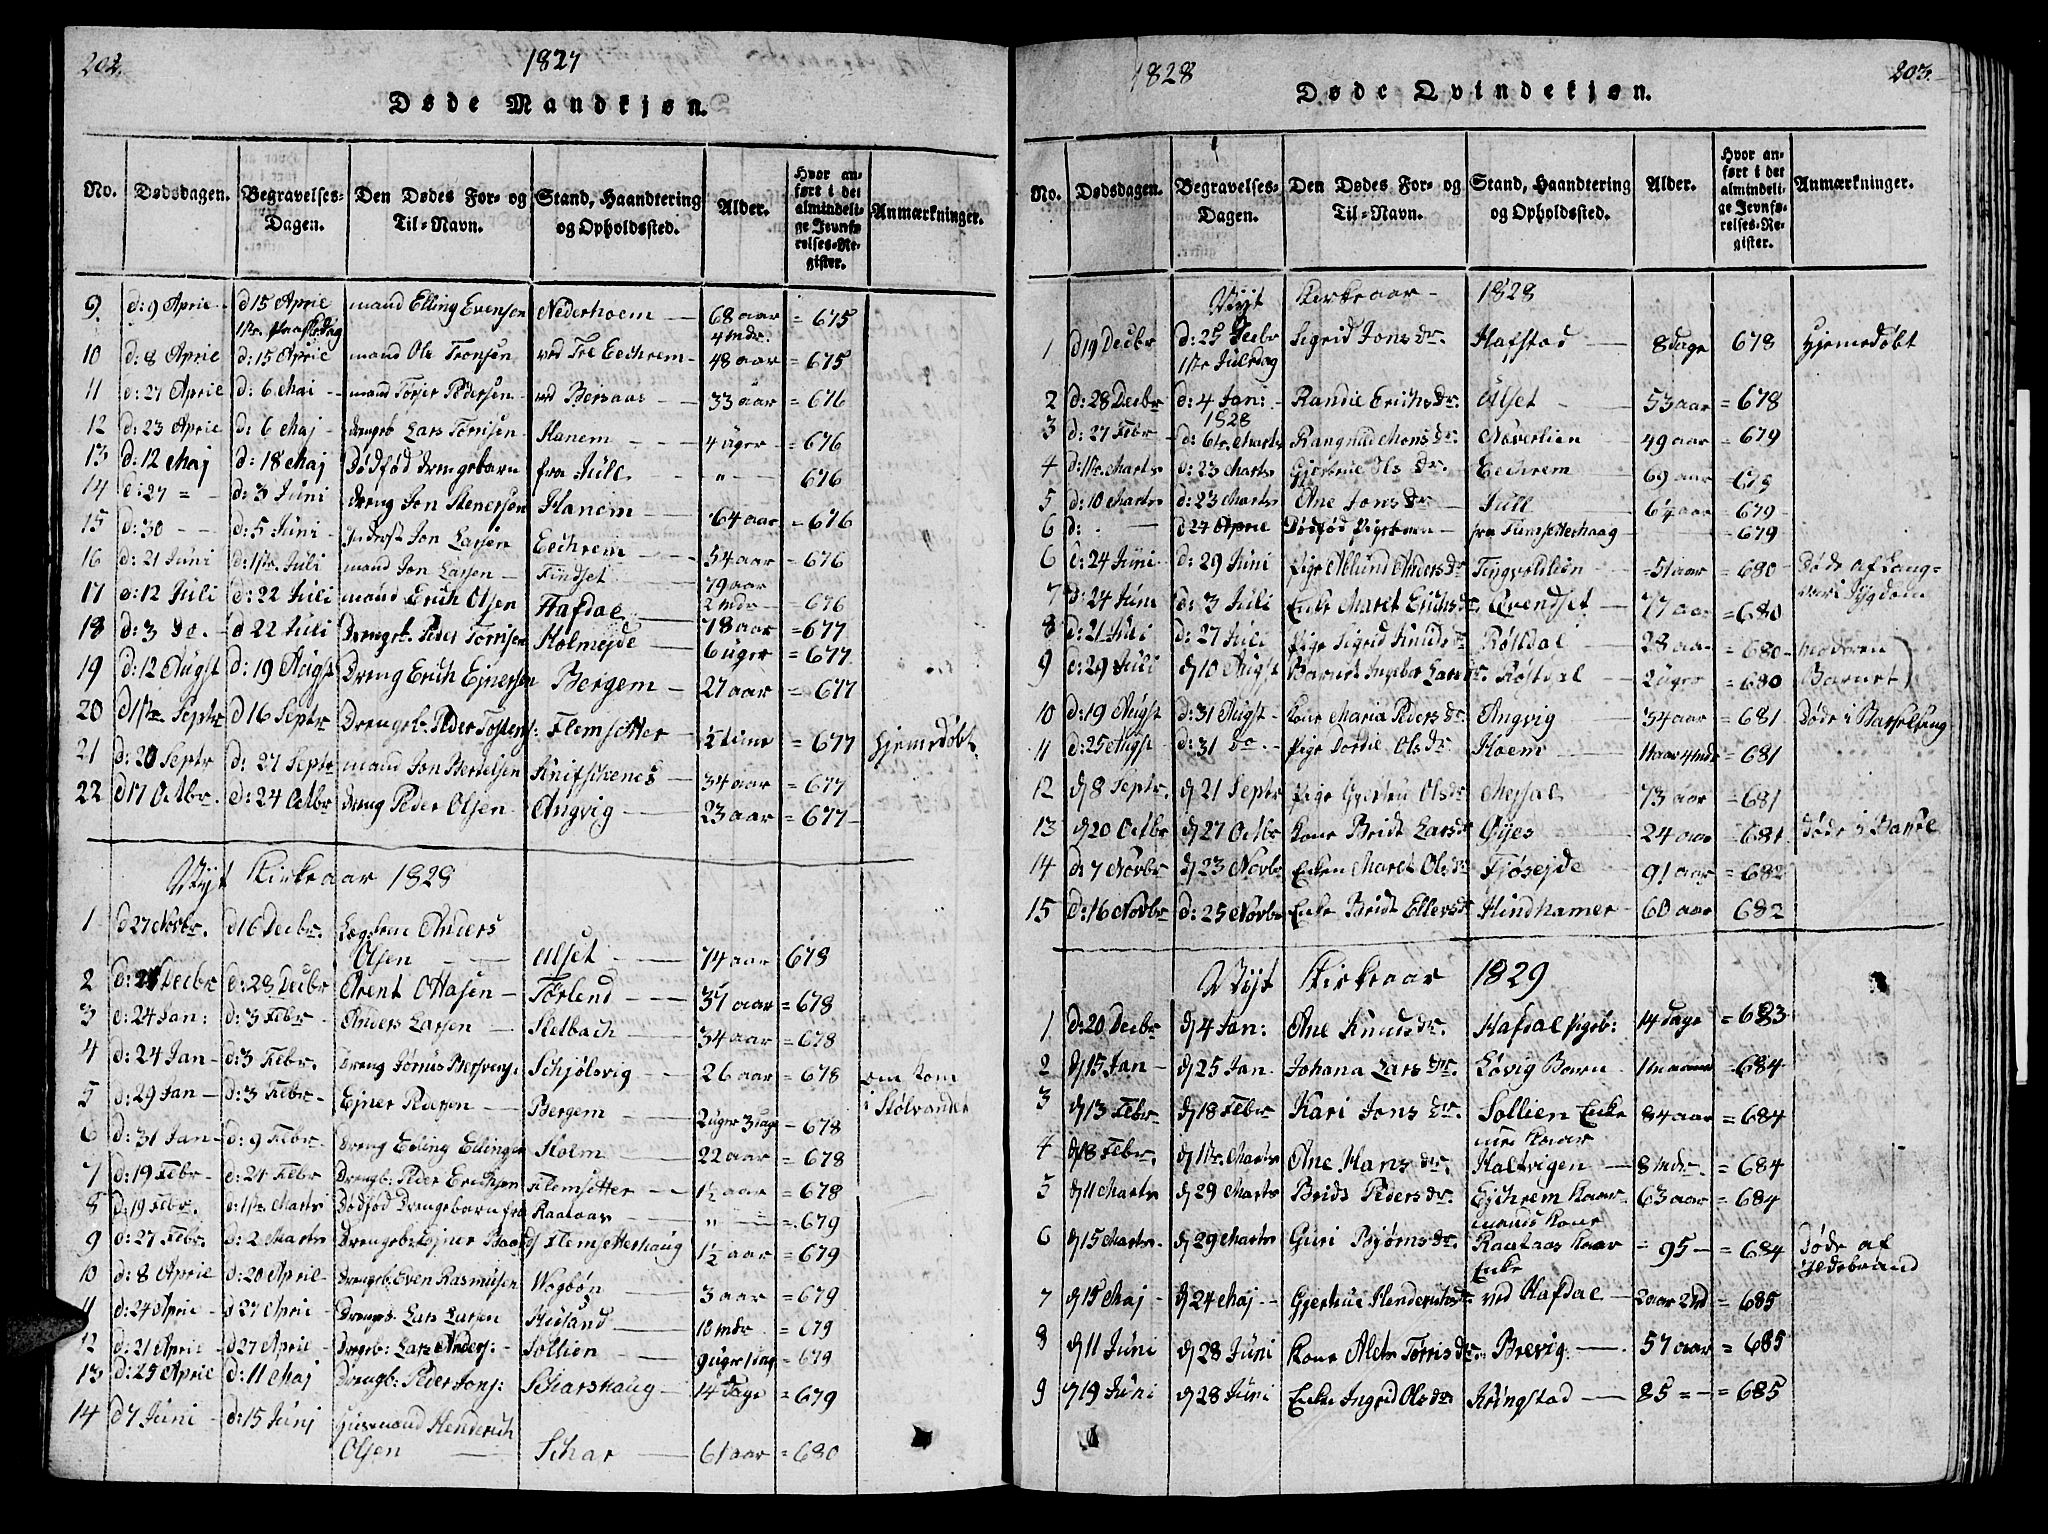 202.
1827
Døde Mandkjøn.
No. Dødsdagen. Begravelses-Dagen. Den Dødes For- og Til-Navn. Stand, Haandtering og Opholdssted. Alder. Hvor anført i det almindelige Jevnførelses-Register. Anmærkninger.
9. d: 9 April d 15 April 1ste Paaskedag mand Elling Evensen Nederhoem 68 aar 4 mdr: = 675
10 d: 8 April d: 15 April mand Ole Tronsen ved Tre Eechrem 48 aar = 675
11 d: 27 April d: 6 Mai mand Törjer Pedersen ved Bersaas 33 aar = 676
12 d: 23 April d: 6 Maj Drengeb Lars Törrisen Hanem 4 Uger = 676
13 d: 12 Maj d: 18 Maj Dödföd Drengebarn fra Jull " 676
14 d: 27 = d: 3 Juni Dreng Jon Stenersen Hanem 64 aar = 676
15 d: 30 d: 5 Juni Inderst Jon Larsen Eechrem 54 aar = 676
16 d: 21 Juni d: 1ste Juli mand Jon Larsen Findset 79 aar
17 d: 12 Juli d: 22 Juli mand Erich Olsen Hafdal 2 mdr 78 aar = 676
18 d: 3 Do. d 22 Juli Drengeb. Peder Törrisen Holmejde 6 uger = 677
19 d: 12 Augst d: 19 Augst Dreng Erich Ejnersen Bergem 27 aar = 677
20 d 1ste Septr d 16 Septr Drengeb. Peder Tostens: Flemsetter ½ time = 677 Hjemedöbt
21 d: 20 Septr d: 27 Septr mand Jon Bertelsen Knifschenes 34 aar = 677
22 d 17 Octbr. d: 24 Octbr Dreng Peder Olsen Angvig 23 aar = 677
Nyt Kirkeaar 1828
1 d 27 Novbr. d 16 Decbr. Anders
Olsen Ulset 74 aar 678
2 d: 21 Decbr d: 28 Decbr Arent Ottasen Torlend 37 aar = 678
3 d: 24 Jan: d: 3 Febr Anders Larsen Sletbach 34 aar = 678
4 d: 24 Jan d: 3 Febr. Dreng Jörus Bersvens: Schjölsvig 26 aar = 678 om kom i Stölvandet
5 d: 29 Jan d: 3 Febr. Ejner Pedersen Bergem 2 uger 3 dage 678
6 d: 31 Jan d: 9 Febr Dreng Elling Ellingsen Holem 22 aar = 678
7 d: 19 Febr d: 24 Febr Drengb. Peder Erichsen Flemsetter 1½ aar = 678
8 d: 19 Febr. d: 1ste Marts Dödföd Drengebarn fra Raalaas " = 679
9 d: 27 Febr. d: 2 Marts Drengeb: Ejner Flemsetterhaug 1½ aar = 679
10 d: 8 April d: 20 April Drengeb: Even Rasmusen Wogbön 3 aar = 679
11 d: 24 April d 27 April Drengeb: Lars Larsen 10 mdr = 679
12 d: 21 April d 27 April Drengeb: Lars Anders: Sollien 9 uger 1 dag = 679
13 d: 25 April d: 11 Maj Drengb: Peder Jons: Scharshaug 14 Dage = 679
14 d 7 Juni d: 15 Junj Huusmand Henderich
Olsen Schar 61 aar = 680
1828
203.
Døde Qvindekjøn.
No. Dødsdagen. Begravelses-Dagen. Den Dødes For- og Til-Navn. Stand, Haandtering og Opholdssted. Alder. Hvor anført i det almindelige Jevnførelses-Register. Anmærkninger.
Nyt Kirkeaar 1828
1 d 19 Decbr d: 25 Decbr 1ste Juledag Sigrid Jons Dr. Hafstad 8 dage 678 Hjemedöbt
2 d: 28 Decbr d: 4 Jan: 1828 Randie Erichs Dr. Ulset 53 aar = 678
3 d: 27 Febr d: 6te Marts Rangnild Mons Dr. Növerlien 49 aar = 679
4 d: 1ste Marts d: 23 Marts Gjertrue Ols Dr. Eechrem 69 aar 679
5 d: 10 Marts d: 23 Marts Ane Jons Dr Jull 64 aar = 679
6 d: d 24 April Dödföd Pigebarn fra Flemsetterhaug = 679
6 d: 24 Juni d: 29 Juni Pige Ablund Anders Dr Tingvoldlien 51 aar = 680 Döde af Langvari Sygdom
7 d: 24 Juni d: 3 Juli Enke Marit Erichs Dr Qvendset 77 aar = 680
8 d: 21 Juli d: 27 Juli Pige Sigrid Knuds Dr Röstdal 28 aar = 680 moderen
9 d: 29 Juli d 10 Augst Barnet Ingebor Lars Dr. Röstdal 2 uger = 680 Barnet
10 d: 19 Augst d: 31 Augst Kone Maria Peders Dr. Angvig 34 aar = 681 Döde i Barselseng
11 d: 25 Augst d: 31 Do. Pige Dordie Ols Dr Hoem 11 aar 4 mdr = 681
12 d 8 Septr. d 21 Septr Pige Gjertru Ols Dr Mejsal 73 aar = 681
13 d 20 Octbr d 27 Octbr Kone Bridt Lars Dr Öyes 24 aar = 681 Döde i Barsel
14 d: 7 Novbr d 23 Novbr Enken Maret Ols Dr Fjösejde 91 aar = 682
15 d: 16 Novbr d: 25 Novbr Enke Bridt Ellers Dr Hindhamer 60 aar 682
Nyt Kirkeaar 1829
1 d: 20 Decbr d 4 Jan: Ane Knuds Dr. Hafdal Pigeb: 14 Dage = 683
2 d 15 Jan d 25 Jan Johana Lars Dr. Lövig Barn 1 maaned 684
3 d 13 Febr d 18 Febr Kari Jons Dr. Sollien Enke 84 aar = 684
4 d 18 Febr. d 1ste Marts Ane Hans Dr. Haltvigen 8 mdr = 684
5 d 11 Marts d 29 Marts Brids Peders Dr. Ejchrem Kaarmands Kone 63 aar = 684
6 d 15 Marts d 29 Marts Guri Bjørns Dr. Raalaas Kaar Enke = 95 = 684 Döde af Ildebrand
7 d 15 Maj d 24 Maj Gjertrue Henderichs Dr ved Hafdal 2 aar = 685
8 d 11 Juni d 28 Juni Kone Alet Törris Dr. Brevig 57 aar = 685
9 d 19 Juni d 28 Juni Enke Ingrid Ols Dr. Kringstad 85 = = 685